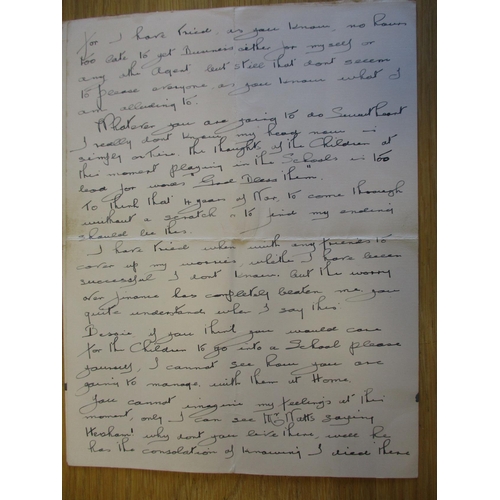 For I have tried, as you know, no hours
too late to get Business either for myself or
any other Agent, but still that dont seem
to please everyone, as you know what I
am alluding to.
Whatever you are going to do Sweetheart
I really dont know, my head now is
simply on fire. The thoughts of the Children at
this moment playing in the Schools is too
bad for words "God Bless them".
To think that 4 years of War, to come through
without a scratch & to find my ending
should be this.
I have tried when with any friends to
cover up my worries, whither I have been
successful I dont know, but the worry
over finance has completely beaten me, you
quite understand when I say this
if you think you would care
for the Children to go into a School please
yourself, I cannot see how you are
going to manage, with them at Home.
You cannot imagine my feelings at this
moment, only I can see Mr Matts saying
why dont you live there, well he
has the consolation of knowing I died there